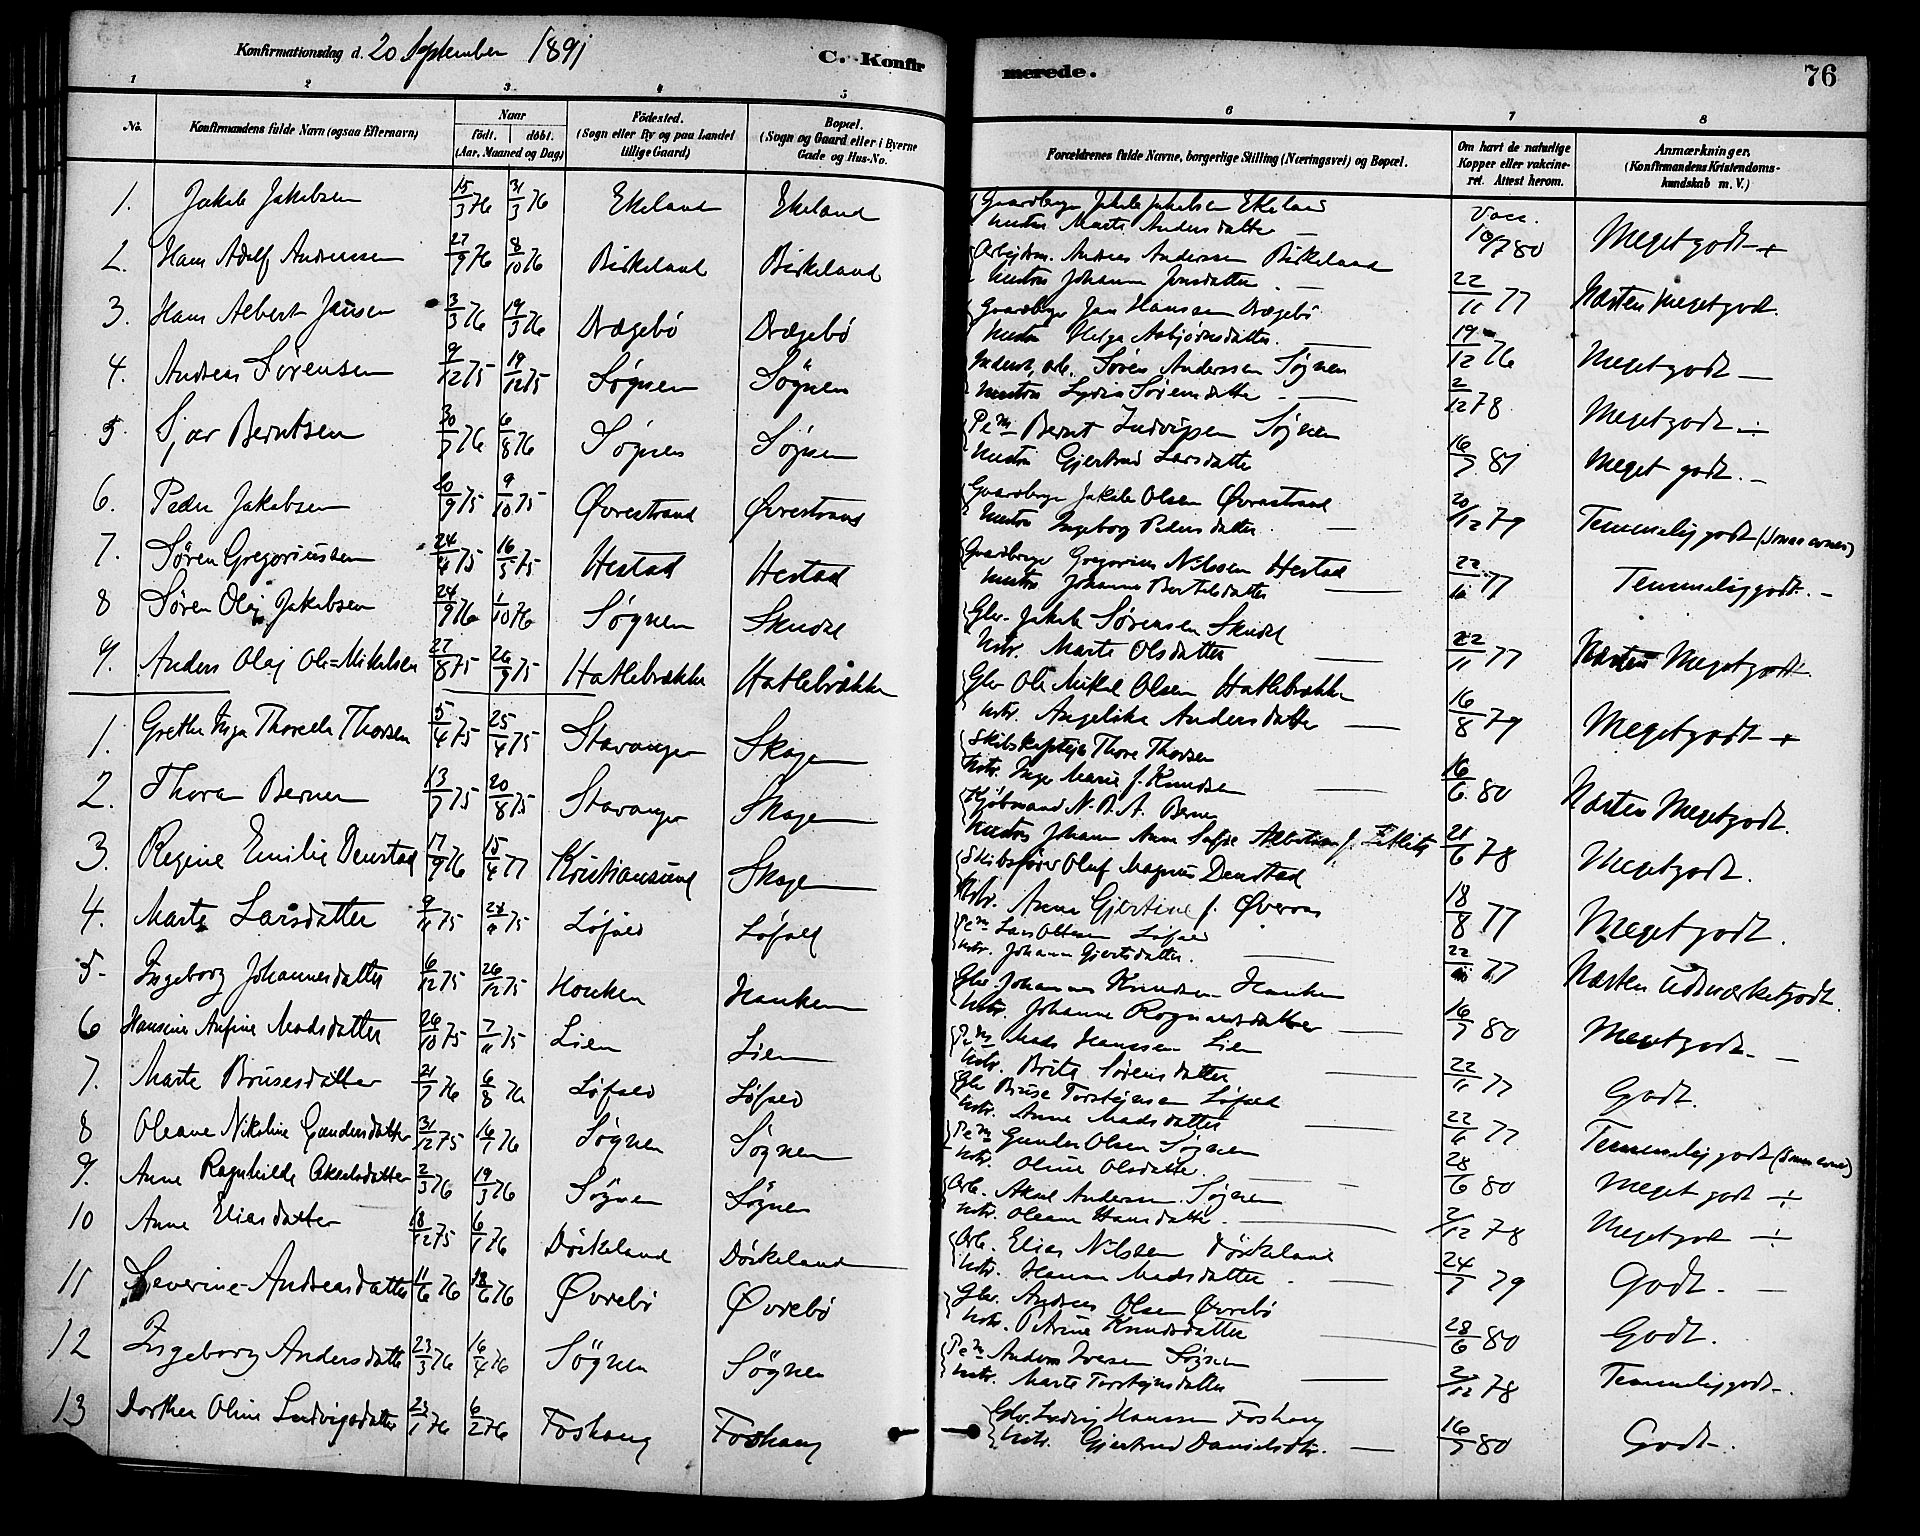 Konfirmationsdag d. 20 September 1891
C. Konfirmerede.
76
1 2 3 4 5 6 7 8
No. Konfirmandens fulde Navn (ogsaa Efternavn) Naar födt. döbt. (Aar, Maaned og Dag) Födested. (Sogn eller By og paa Landet tillige Gaard) Bopæl. (Sogn og Gaard eller i Byerne Gade og Hus-No. Forældrenes fulde Navne, borgerlige Stilling (Næringsvei) og Bopæl. Om havt de naturlige Kopper eller vakcineret. Attest herom. Anmærkninger. (Konfirmandens Kristendomskundskab m. V.)
1. Jakob Jakobsen 15/3 76 31/3 76 Ekeland Ekeland Gaardbrgr Jakob Jakobsen Ekeland Hustru Marte Andersdatter — Vacc. 10/7 80 Meget godt +
2. Hans Adolf Andreassen 27/9 76 8/10 76 Birkeland Birkeland Arbejdsm. Andreas Anderssen Birkeland Hustru Johanna Jonsdatter — 22/11 77 Næsten Meget godt.
3. Hans Albert Jansen 3/3 76 19/3 76 Drægebö Drægebö Gaardbrgr Jan Hanssen Drægebö Hustru Helga Asbjørnsdatter. — 19/12 76 Meget godt —
4. Andreas Sørensen 9/12 75 19/12 75 Søgnen Søgnen Søren Anderssen Søgnen Hustru Lydia Sørensdatter — 2/12 78 Meget godt ÷
5 Sjar Berntsen 30/7 76 6/8 76 Søgnen Søgnen Pem Bernt Ludvigsen Søgnen Hustru Gjertrud Larsdatter 16/7 81 Meget godt. —
6. Peder Jakobsen 20/9 75 9/10 75 Øvrestrand Øvrestrand Gaardbrgr Jakob Olsen Øvrestrand Hustru Ingeborg Pedersdatter. — 20/12 79 Temmelig godt (Smaa evner)
7. Søren Gregoriussen 24/4 75 16/5 75 Hestad Hestad Gaardbrgr Gregorius Nilssen Hestad Hustru Johanna Bertelsdatter — 22/11 77 Temmelig godt. —
8 Søren Olaj Jakobsen 24/9 76 1/10 76 Søgnen Skudal Gbr. Jakob Sørensen Skudal Hstr. Marte Olsdatter — 22/11 77 Næsten Meget godt
9. Anders Olaj Ole-Mikelsen 27/8 75 26/9 75 Hatlebrække Hatlebrække Gbr Ole Mikal Olsen Hatlebrække Hstr. Angelika Andersdatter — 16/8 79 Meget godt +
1. Grethe Inga Thorcelle Thorsen 5/4 75 25/4 75 Stavanger Skagen Skibskaptejn Thore Thorsen Hstr. Inger Marie f. Knudsen — 16/6 80 Næsten Meget godt.
2. Thora Berner 13/7 75 20/8 75 Stavanger Skagen Kjöbmand N. B. A. Berner Hustru Johanne Anna Sofie Albertine f. 21/6 78 Meget godt.
3. Regine Emilie Denstad 17/9 76 15/4 77 Kristiansund Skagen Skibsfører Oluf Magnus Denstad Hstr. Anne Gjertine f. Øveraas 18/8 77 Meget godt.
4. Marte Larsdatter 9/11 75 28/11 75 Løfald Løfald Pem Lars Olsen Løfald Hstr. Johanna Gjertsdatter. — 22/11 77 Næsten Udmærketgodt.
5. Ingeborg Johannesdatter 6/12 75 26/12 75 Hauken Hauken Gbr. Johannes Knudsen Hauken Hstr. Johanne Rognaldsdatter — 16/7 80 Meget godt. —
6 Hansine Anfine Madsdatter 26/10 75 7/11 75 Lien Lien Pem Mads Hanssen Lien Hstr. Brita Sørensdatter — 22/11 77 Godt.
7. Marta Brusesdatter 21/7 76 6/8 76 Løfald Løfald Gbr Bruse Torstejnsen Løfald Hstr. Anne Madsdatter — 22/11 77 Temmelig godt (Smaa evner)
8 Oleane Nikoline Gundersdatter 31/12 75 16/1 76 Søgnen Søgnen Pem Gunder Olsen Søgnen Hstr. Oline Olsdatter. 28/6 80 Meget godt ÷
9. Anne Ragnhilde Akselsdatter 2/3 76 19/3 76 Søgnen Søgnen Arb. Aksel Andersen Søgnen Hstr. Oleane Hansdatter. — 2/12 78 Meget godt ÷
10 Anne Eliasdatter 18/12 75 6/1 76 Döskeland Döskeland Arb. Elias Nilssen Döskeland Hstr. Hanna Madsdatter. — 24/7 79 Godt. —
11 Severine Andreasdatter 11/6 76 18/6 76 Øvrebö Øvrebö Gbr. Andreas Olsen Øvrebö Hstr. Petrine Knudsdatter — 28/6 80 Godt.
12 Ingeborg Andersdatter 23/3 76 16/4 76 Søgnen Søgnen Pem Anders Iversen Søgnen Hstr. Marte Torstejnsdatter — 2/12 78 Temmelig godt.
13 Dorthea Oline Ludvigsdatter 23/1 76 6/2 76 Foshaug Foshaug Gbr. Ludvig Hanssen Foshaug Hstr. Gjertrud Danielsdtr. — 16/7 80 Godt.